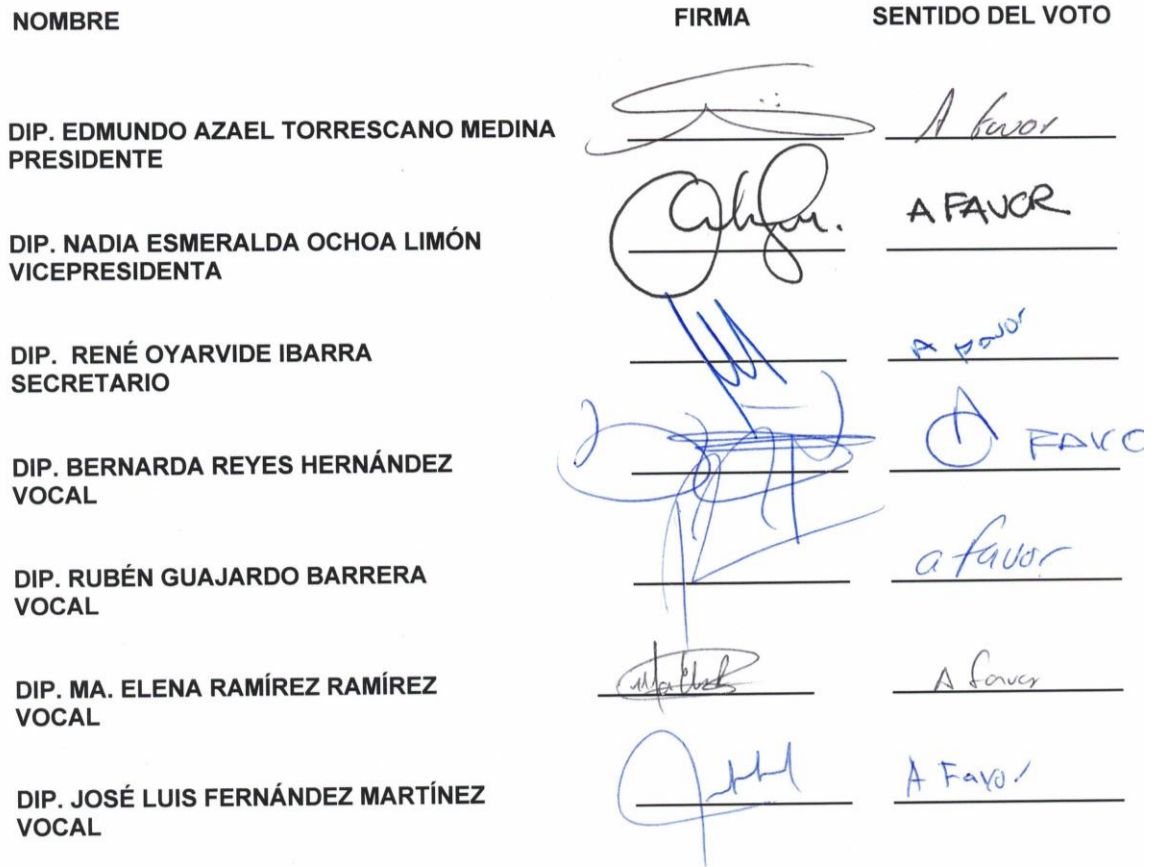 NOMBRE FIRMA SENTIDO DEL VOTO
DIP. EDMUNDO AZAEL TORRESCANO MEDINA A favor
PRESIDENTE
A FAVOR
DIP. NADIA ESMERALDA OCHOA LIMÓN
VICEPRESIDENTA
DIP. RENÉ OYARVIDE IBARRA A favor
SECRETARIO
A FAVO
DIP. BERNARDA REYES HERNÁNDEZ
VOCAL
DIP. RUBÉN GUAJARDO BARRERA a favor
VOCAL
DIP. MA. ELENA RAMÍREZ RAMÍREZ A favor
VOCAL
DIP. JOSÉ LUIS FERNÁNDEZ MARTÍNEZ A Favor
VOCAL